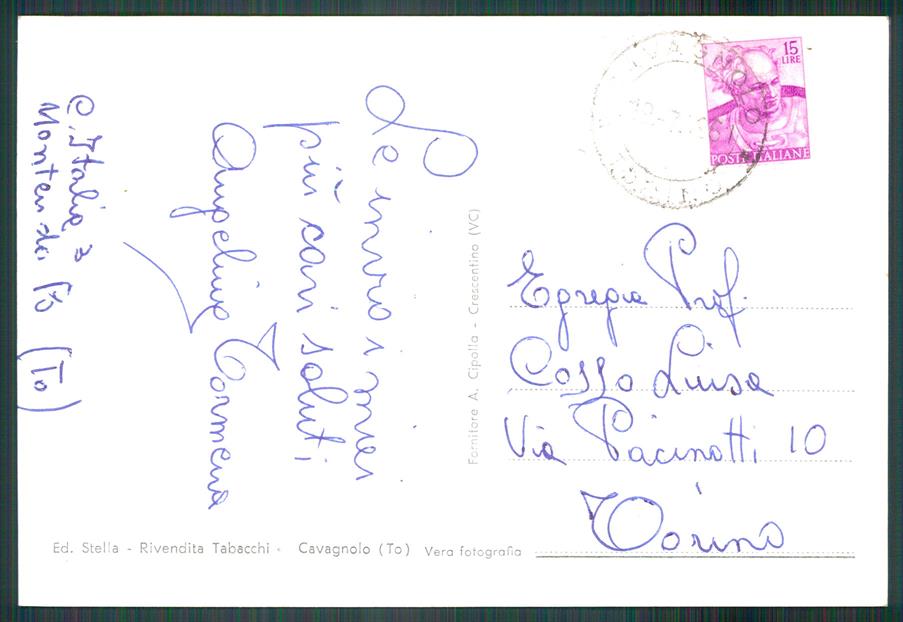 Le invio i miei
più cari saluti
Angelina Tormena
C. Italia 3
Monteu da Po (To)
15
LIRE
POSTE ITALIANE
Egregia Prof.
Cosso Luisa
Via Pacinotti 10
Torino
Fornitore A. Cipolla - Crescentino (VC)
Ed. Stella - Rivendita Tabacchi - Cavagnolo (To) Vera fotografia